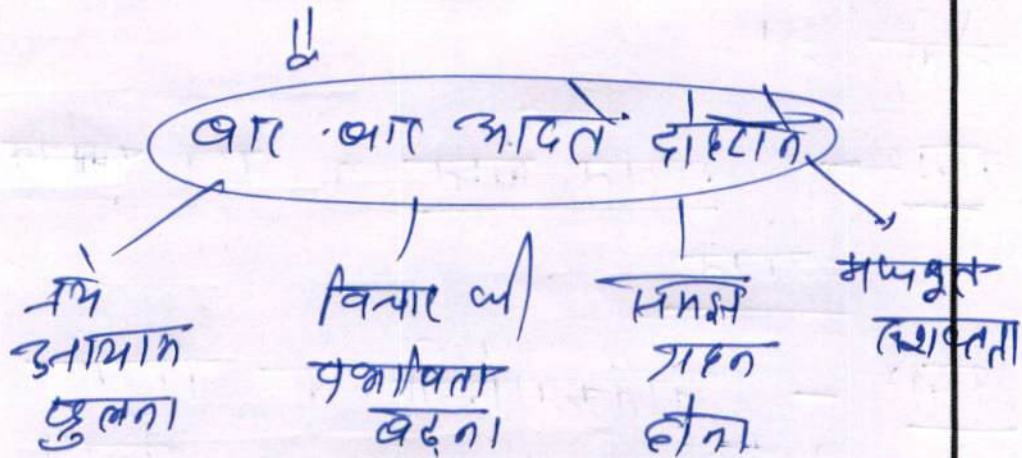 बार बार आदते दोहराने
नये
आयाम
खुलना
विचार की
प्रभाविता
बढ़ना
समझ
गहन
होना
मजबूत
सशक्तता